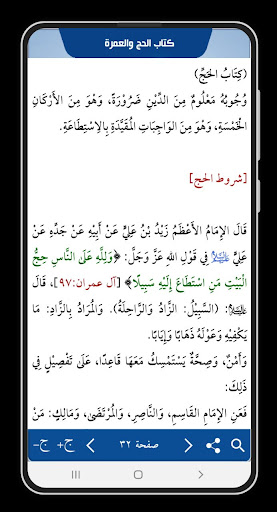 كتاب الحج والعمرة
(كِتَابُ الحَجِّ)
وُجُوبُهُ مَعْلُومٌ مِنَ الدِّيْنِ ضَرُورَةً، وَهُوَ مِنَ الأَرْكَانِ
الْخَمْسَةِ، وَهُوَ مِنَ الوَاجِبَاتِ الْمُقَيَّدَةِ بِالاِسْتِطَاعَةِ.
[شروط الحج]
قَالَ الإِمَامُ الأَعْظَمُ زَيْدُ بْنُ عَلِيٍّ عَنْ أَبِيْهِ عَنْ جَدِّهِ عَنْ
عَلِيٍّ فِي قَوْلِ اللهِ عَزَّ وَجَلَّ: ﴿وَلِلَّهِ عَلَى النَّاسِ حِجُّ
الْبَيْتِ مَنِ اسْتَطَاعَ إِلَيْهِ سَبِيلًا﴾ [آل عمران:٩٧]، قَالَ
: (السَّبِيْلُ: الزَّادُ وَالرَّاحِلَةُ). وَالْمُرَادُ بِالزَّادِ: مَا
يَكْفِيْهِ وَعَوْلَهُ ذَهَابًا وَإِيَابًا.
وَأَمْنٌ، وَصِحَّةٌ يَسْتَمْسِكُ مَعَهَا قَاعِدًا، عَلَى تَفْصِيْلٍ فِي
ذَلِكَ:
فَعَنِ الإِمَامِ القَاسِمِ، وَالنَّاصِرِ، وَالْمُرْتَضَى، وَمَالِكٍ: مَنْ
ج- ج+ صفحة ٣٢